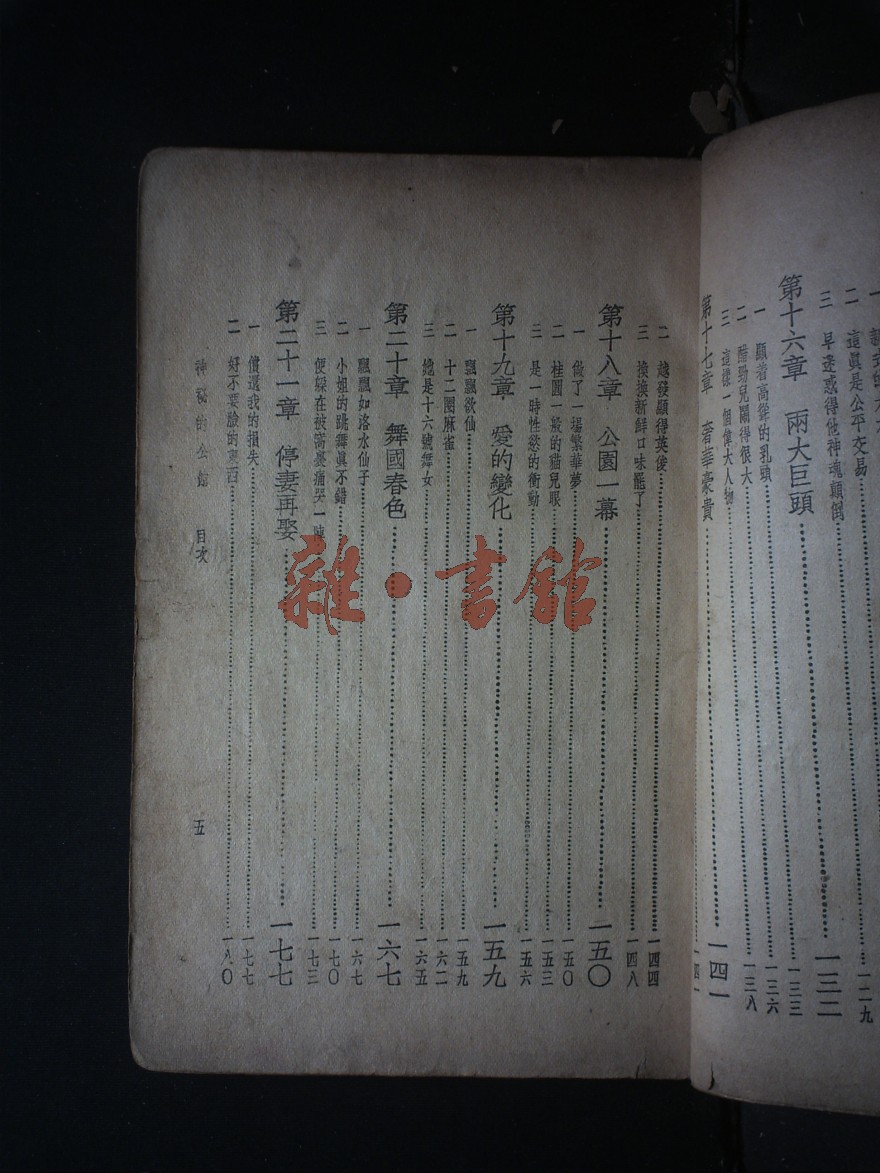 二 這眞是公平交易 一二九
三 早迷惑得他神魂顛倒
第十六章 兩大巨頭 一三二
一 顯着高聳的乳頭 一三三
二 醋勁兒鬧得很大 一三六
三 這樣一個偉大人物 一三八
第十七章 奢華豪貴 一四一
二 越發顯得英俊 一四四
三 換換新鮮口味罷了 一四八
第十八章 公園一幕 一五〇
一 做了一場繁華夢 一五〇
二 桂圓一般的貓兒眼 一五三
三 是一時性慾的衝動 一五六
第十九章 愛的變化 一五九
一 飄飄欲仙 一五九
二 十二圈麻雀 一六二
三 總是十六號舞女 一六五
第二十章 舞國春色 一六七
一 飄飄如洛水仙子 一六七
二 小姐的跳舞眞不錯 一七〇
三 便躲在被窩憂痛哭一陣 一七三
第二十一章 停妻再娶 一七七
一 償還我的損失 一七七
二 好不要臉的東西 一八〇
神秘的公館 目次 五
雜·書館